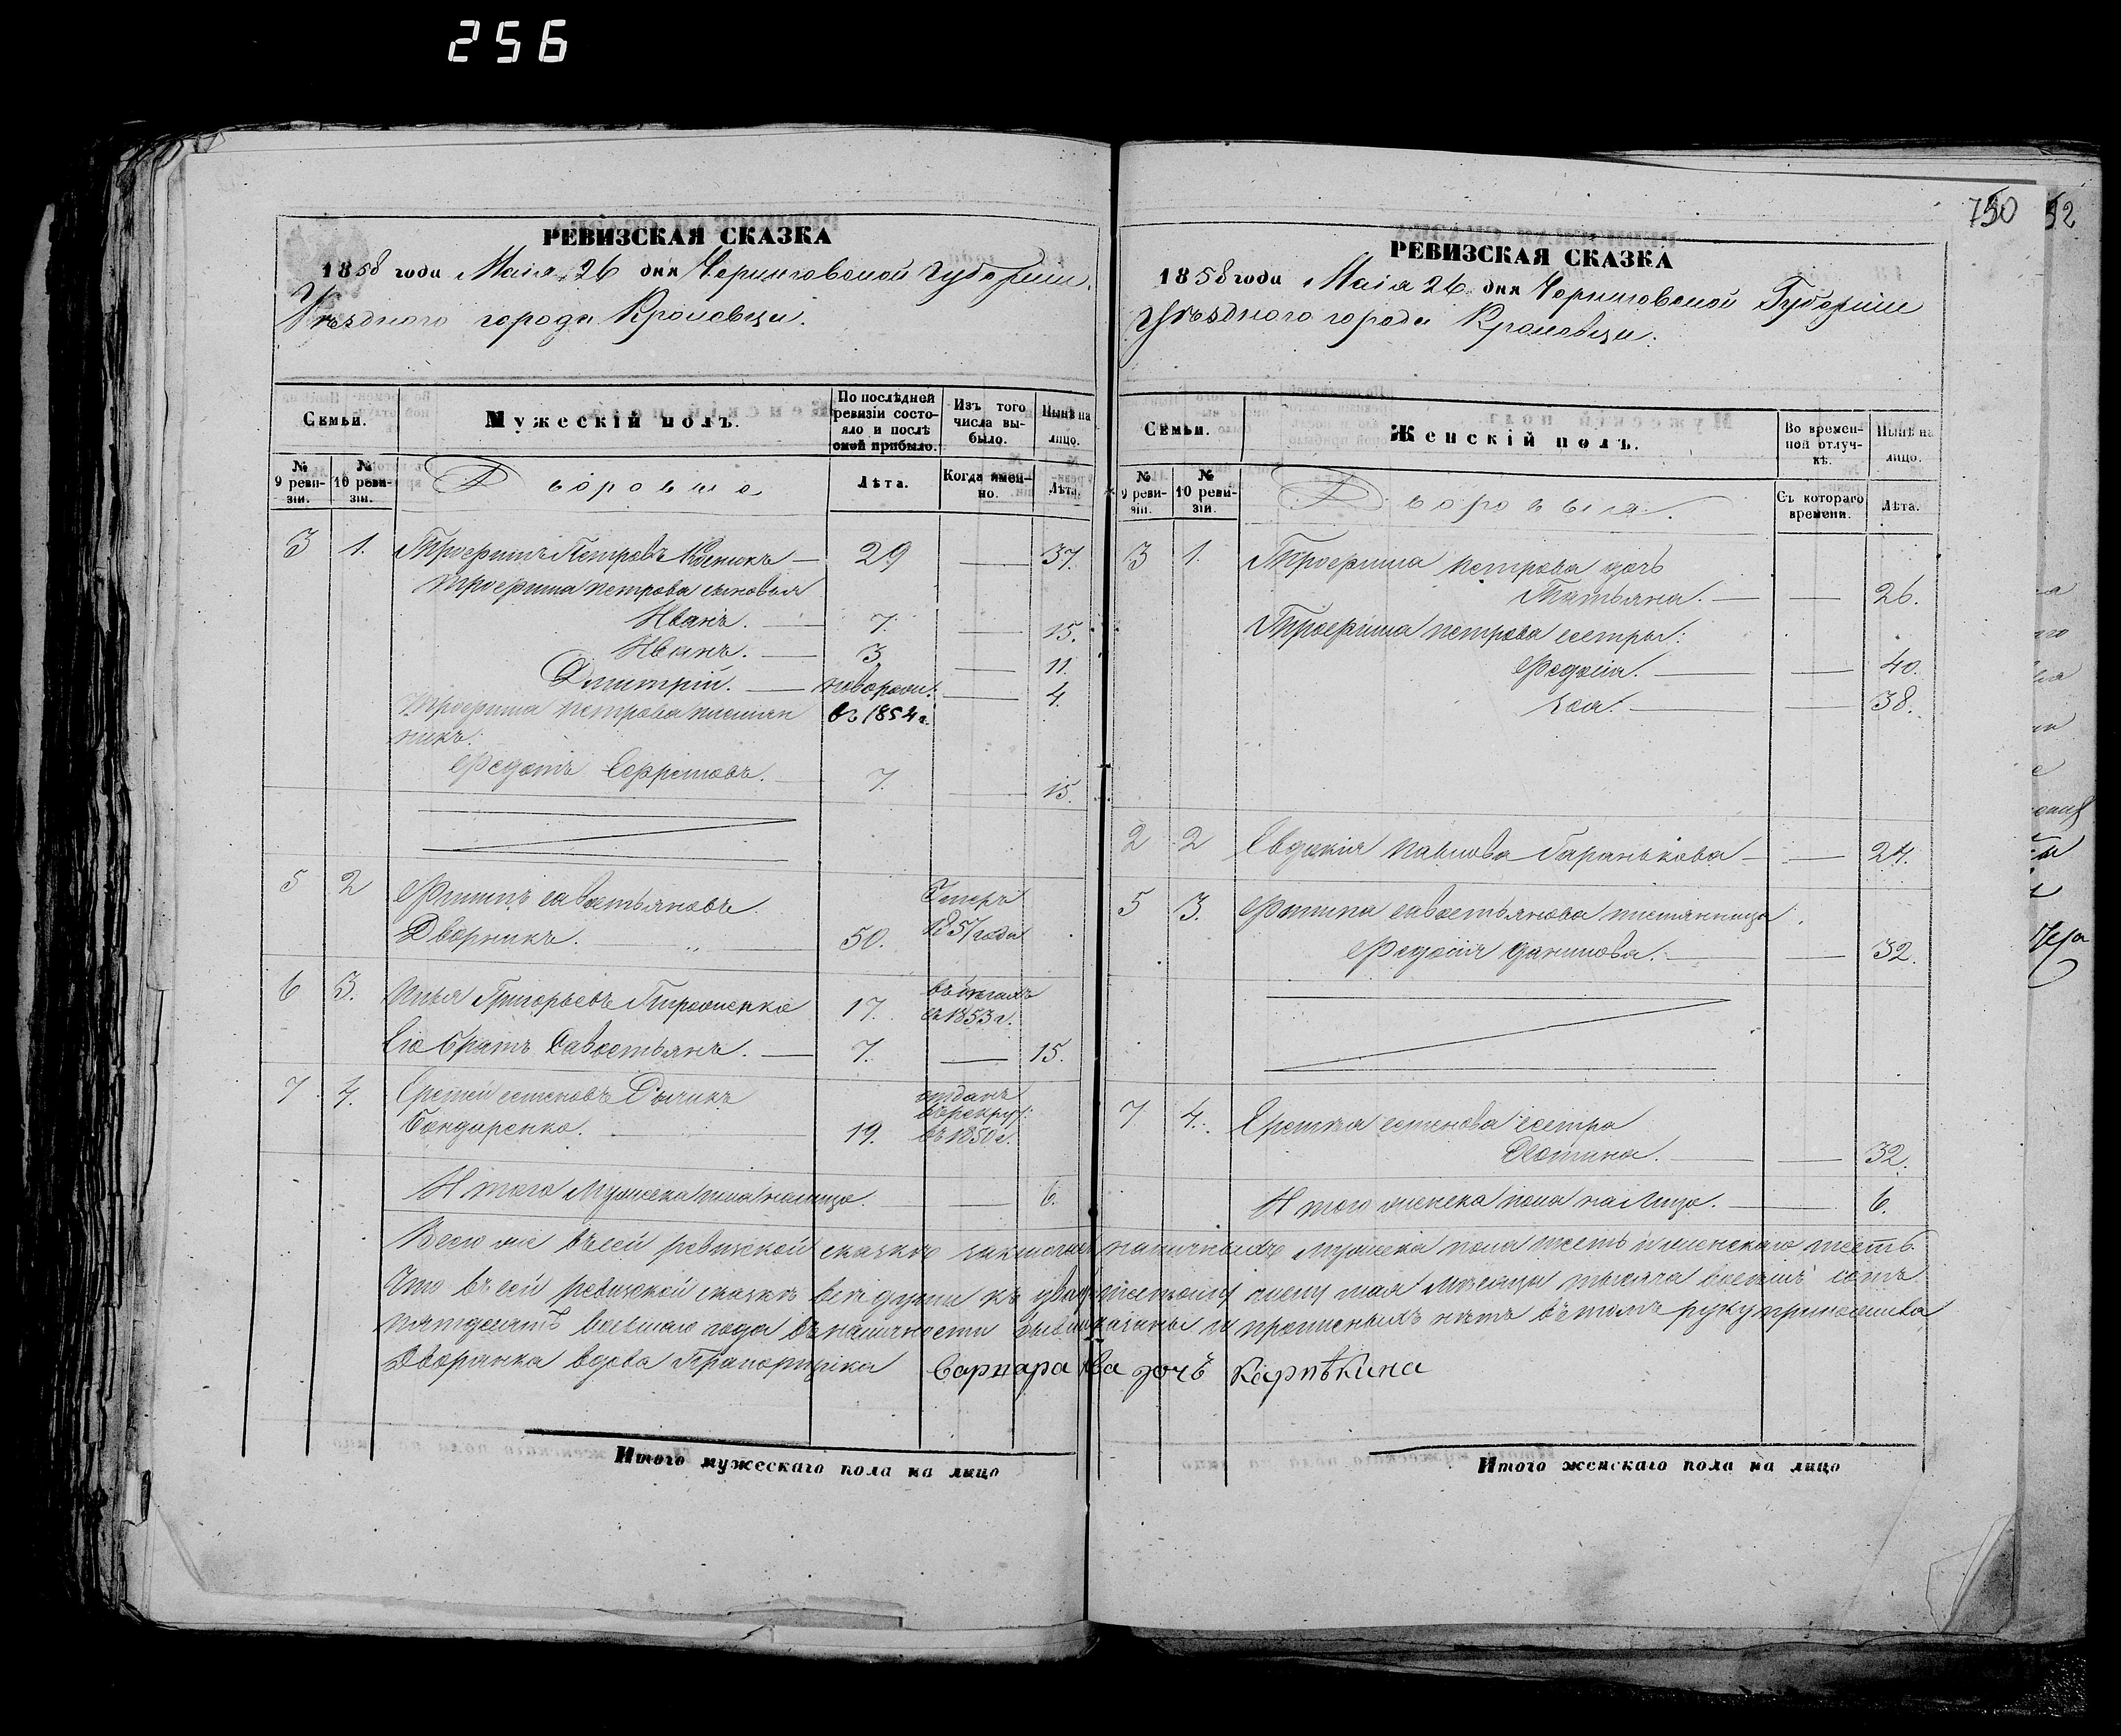 256
750 52
РЕВИЗСКАЯ СКАЗКА
1858 года Маія 26 дня Черниговской губерніи
Уѣзднаго города Кролевца.
Семьи.
Мужескій полъ.
По послѣдней ревизіи состояло и послѣ оной прибыло.
Изъ того числа выбыло.
Нынѣ на лицо.
№ 9 ревизіи.
№ 10 ревизіи.
Дворовыя
Лѣта.
Когда именно.
Лѣта.
3 1. Трофимъ Петровъ — 29 — 37.
Трофима петрова сыновья
Иванъ. — 7. — 15.
Иванъ. — 3 — 11.
Дмитрій. — новорож: — 4.
Трофима петрова племян
въ 1854 г.
никъ:
Федотъ Ефремовъ. — 7. — 15.
5 2 Филипъ савостьяновъ
Умеръ
Дворникъ. 50. 1857 года
6 3. Илья Григорьевъ Тимошенко 17. въ бѣгахъ
съ 1853 г.
Его братъ Савостьянъ. — 7. — 15.
7 4. семеновъ
отданъ
въ рекрут:
Бондаренко. — 19. въ 1850 г.
Итого Мужеска пола налицо. — 6.
РЕВИЗСКАЯ СКАЗКА
1858 года Маія 26 дня Черниговской Губерніи
Уѣзднаго города Кролевца.
Семьи.
Женскій полъ.
Во временной отлучкѣ.
Нынѣ на лицо.
№ 9 ревизіи.
№ 10 ревизіи.
Дворовыя.
Съ котораго времени.
Лѣта.
3 1. Трофима петрова дочь
Татьяна. — — 26.
Трофима петрова сестры:
Федосія. — — 40.
— — 38.
2 2 Евдокія павлова — — 24.
5 3. Филипа савостьянова племянница
Федосія данилова. — — 32.
7 4. семенова сестра
— — 32.
Итого женска пола на Лицо. — 6.
Всего же въ сей ревизской сказкѣ наличныхъ Мужеска пола шесть и женскаго шесть.
Что въ сей ревизской сказкѣ всѣ души къ двадцать шестому числу мая Мѣсяца тысяча восемь сотъ
пятдесятъ восьмаго года въ наличности показаны и прописныхъ нѣтъ въ томъ руку приложила
Дворянка вдова Прапорщика дочь
Итого мужескаго пола на лицо
Итого женскаго пола на лицо